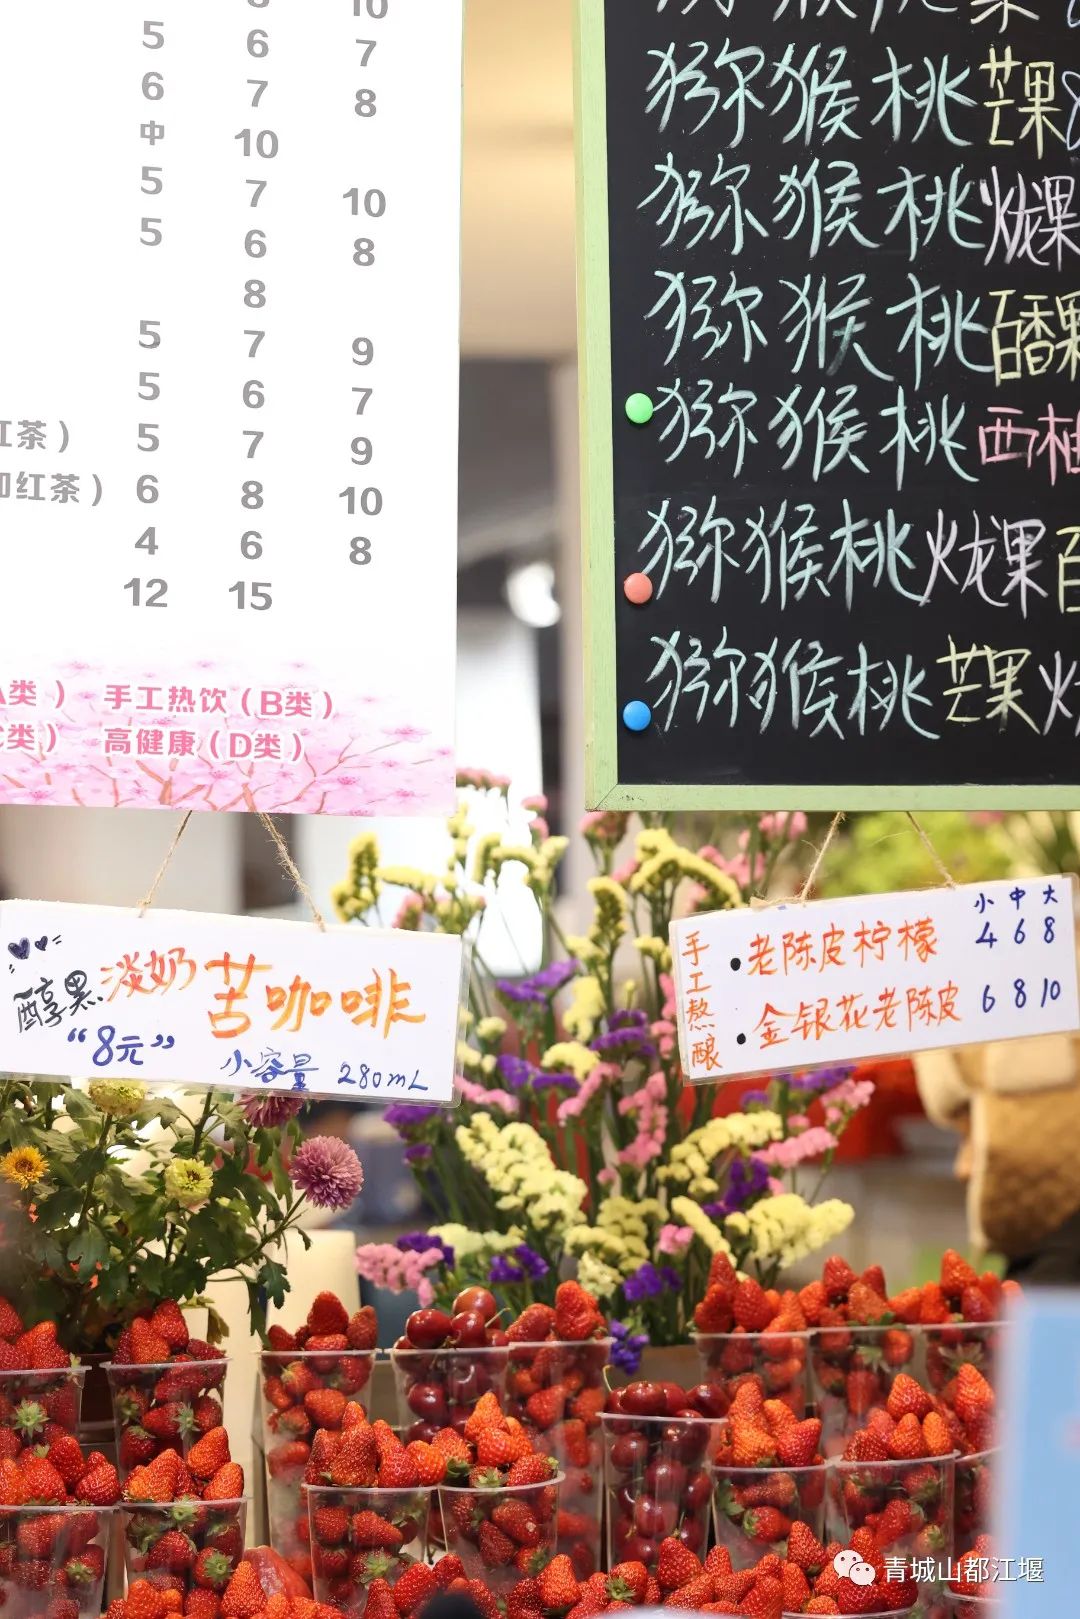 10
5 6 7
6 7 8
中 10
5 7 10
5 6 8
8
5 7 9
5 6 7
红茶） 5 7 9
红茶） 6 8 10
4 6 8
12 15
类） 手工热饮（B类）
类） 高健康（D类）
猕猴桃芒果
猕猴桃火龙果
猕猴桃百香果
猕猴桃西柚
猕猴桃火龙果百
猕猴桃芒果火
醇黑淡奶苦咖啡
“8元” 小容量 280mL
手工熬酿
小 中 大
•老陈皮柠檬 4 6 8
•金银花老陈皮 6 8 10
青城山都江堰